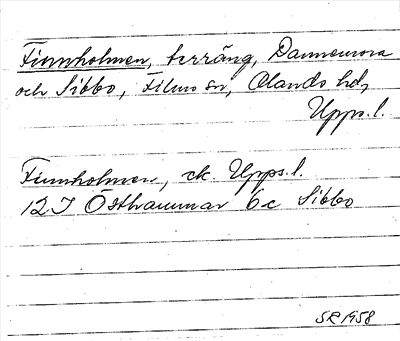 Finnholmen, terräng, Dannemora
och Sibbo, Films sn, Olands hd,
Upps. l.
Finnholmen, ek. Upps. l.
12 I Östhammar 6c Sibbo
SR 1958